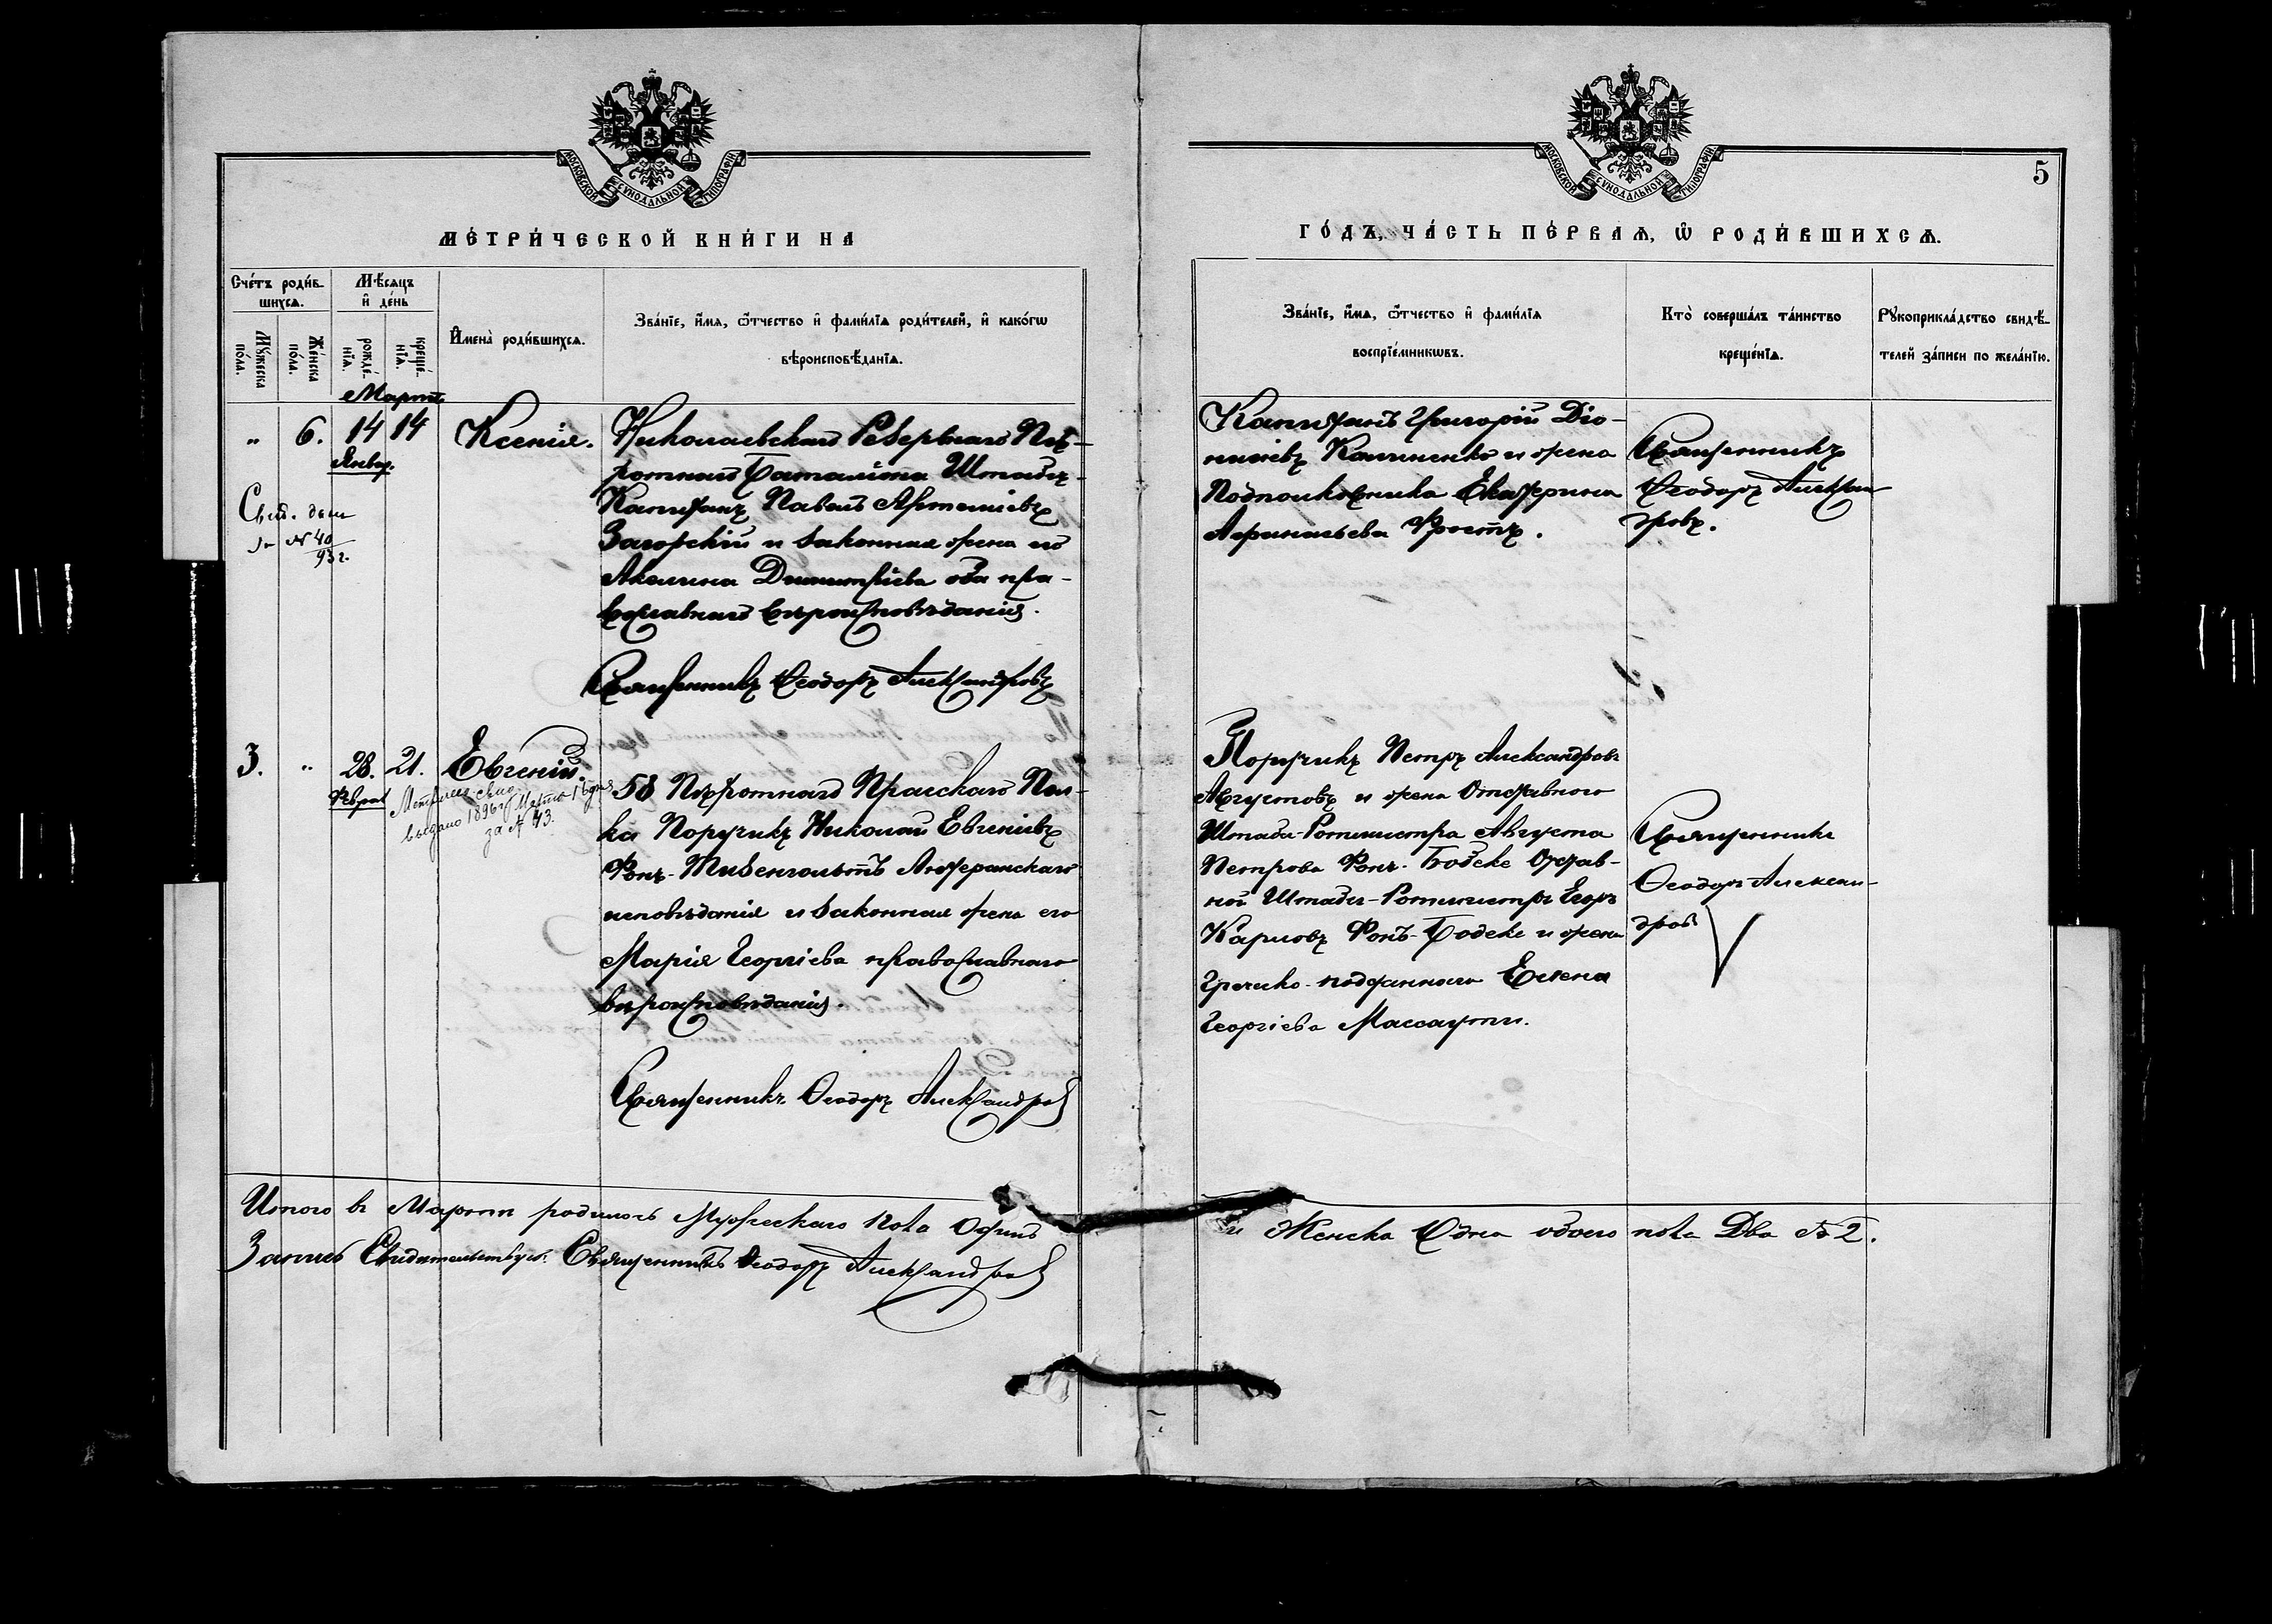 МОСКОВСКОЙ СѴНОДАЛЬНОЙ ТИПОГРАФІИ.
МЕ́ТРИ́ЧЕСКОЙ КНИ́ГИ НА
Сче́тъ роди́в-
шихсѧ.
Мѣ́сѧцъ
и҆ де́нь
Мꙋ́жеска
по́ла.
Же́нска
по́ла.
рожде́-
нїѧ.
креще́-
нїѧ.
И҆мена̀ роди́вшихсѧ.
Зва́нїе, и҆́мѧ, ѻ҆́тчество и҆ фами́лїѧ роди́телей, и҆ како́гѡ
вѣроисповѣ́данїѧ.
Мартъ
„ 6. 14 14 Ксенія.
Январ.
Свид. дан
№ 40
93 г.
Николаевскаго Резервнаго Пѣ-
хотнаго Баталіона Штабсъ-
Капитанъ Павелъ Артеміевъ
Загорскій и законная жена его
Акелина Димитріева оба пра-
вославнаго вѣроисповѣданія.
Священникъ Ѳеодоръ Александровъ
3. „ 28. 21. Евгеній.
Феврал
Метрич. свид.
выдано 1896 г. Марта 16 дня
за № 43.
58 Пѣхотнаго Прагскаго Пол-
ка Поручикъ Николай Евгеніевъ
Фонъ-Тизенгольтъ Лютеранскаго
исповѣданія и законная жена его
Марія Георгіева православнаго
вѣроисповѣданія.
Священникъ Ѳеодоръ Александров
Итого въ Мартѣ родилось Мужескаго пола Одинъ
Запись Свидѣтельствую: Священникъ Ѳеодоръ Александров
МОСКОВСКОЙ СѴНОДАЛЬНОЙ ТИПОГРАФІИ.
5
ГО́ДЪ, ЧА́СТЬ ПЕ́РВАѦ, Ѡ҆ РОДИ́ВШИХСѦ.
Зва́нїе, и҆́мѧ, ѻ҆́тчество и҆ фами́лїѧ
воспрїе́мникѡвъ.
Кто̀ соверша́лъ та́инство
креще́нїѧ.
Рꙋкоприкла́дство свидѣ́-
телей за́писи по жела́нїю.
Капитанъ Григорій Діо-
нисіевъ Калиненко и жена
Подполковника Екатерина
Афанасьева Фростъ.
Священникъ
Ѳеодоръ Алексан
дровъ.
Поручикъ Петръ Александровъ
Августовъ и жена Отставного
Штабъ-Ротмистра Августа
Петрова Фонъ-Бодеке Отстав-
ной Штабъ-Ротмистръ Егоръ
Карловъ Фонъ-Бодеке и жена
Греческо-подданнаго Елена
Георгіева Массаути.
Священникъ
Ѳеодоръ Алексан-
дров
и Женска Одна обоего пола Два № 2.